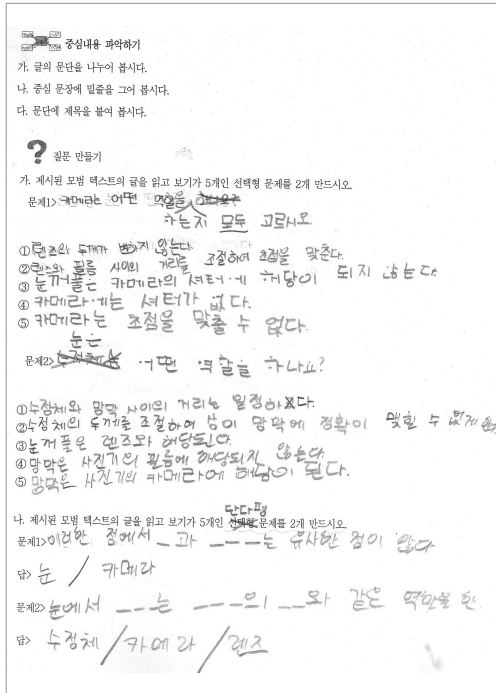 중심내용 파악하기
가. 글의 문단을 나누어 봅시다.
나. 중심 문장에 밑줄을 그어 봅시다.
다. 문단에 제목을 붙여 봅시다.
? 질문 만들기
가. 제시된 모범 텍스트의 글을 읽고 보기가 5개인 선택형 문제를 2개 만드시오.
문제1> 카메라는 어떤 역할을 하나요?
하는지 모두 고르시오
① 렌즈와 두께가 변하지 않는다.
② 렌즈와 필름 사이의 거리를 조절하여 초점을 맞춘다.
③ 눈꺼풀은 카메라의 셔터에 해당이 되지 않는다.
④ 카메라에는 셔터가 없다.
⑤ 카메라는 초점을 맞출 수 없다.
눈은
문제2> 수정체는 어떤 역할을 하나요?
① 수정체와 망막 사이의 거리는 일정하다.
② 수정체의 두께를 조절하여 상이 망막에 정확이 맺힐 수 없게 한다.
③ 눈꺼풀은 렌즈와 해당된다.
④ 망막은 사진기의 필름에 해당되지 않는다.
⑤ 망막은 사진기의 카메라에 해당이 된다.
단다평
나. 제시된 모범 텍스트의 글을 읽고 보기가 5개인 선택형 문제를 2개 만드시오.
문제1> 이러한 점에서 _과 ___는 유사한 점이 많다
답> 눈 / 카메라
문제2> 눈에서 ___는 ___의 __와 같은 역할을 한
답> 수정체 / 카메라 / 렌즈